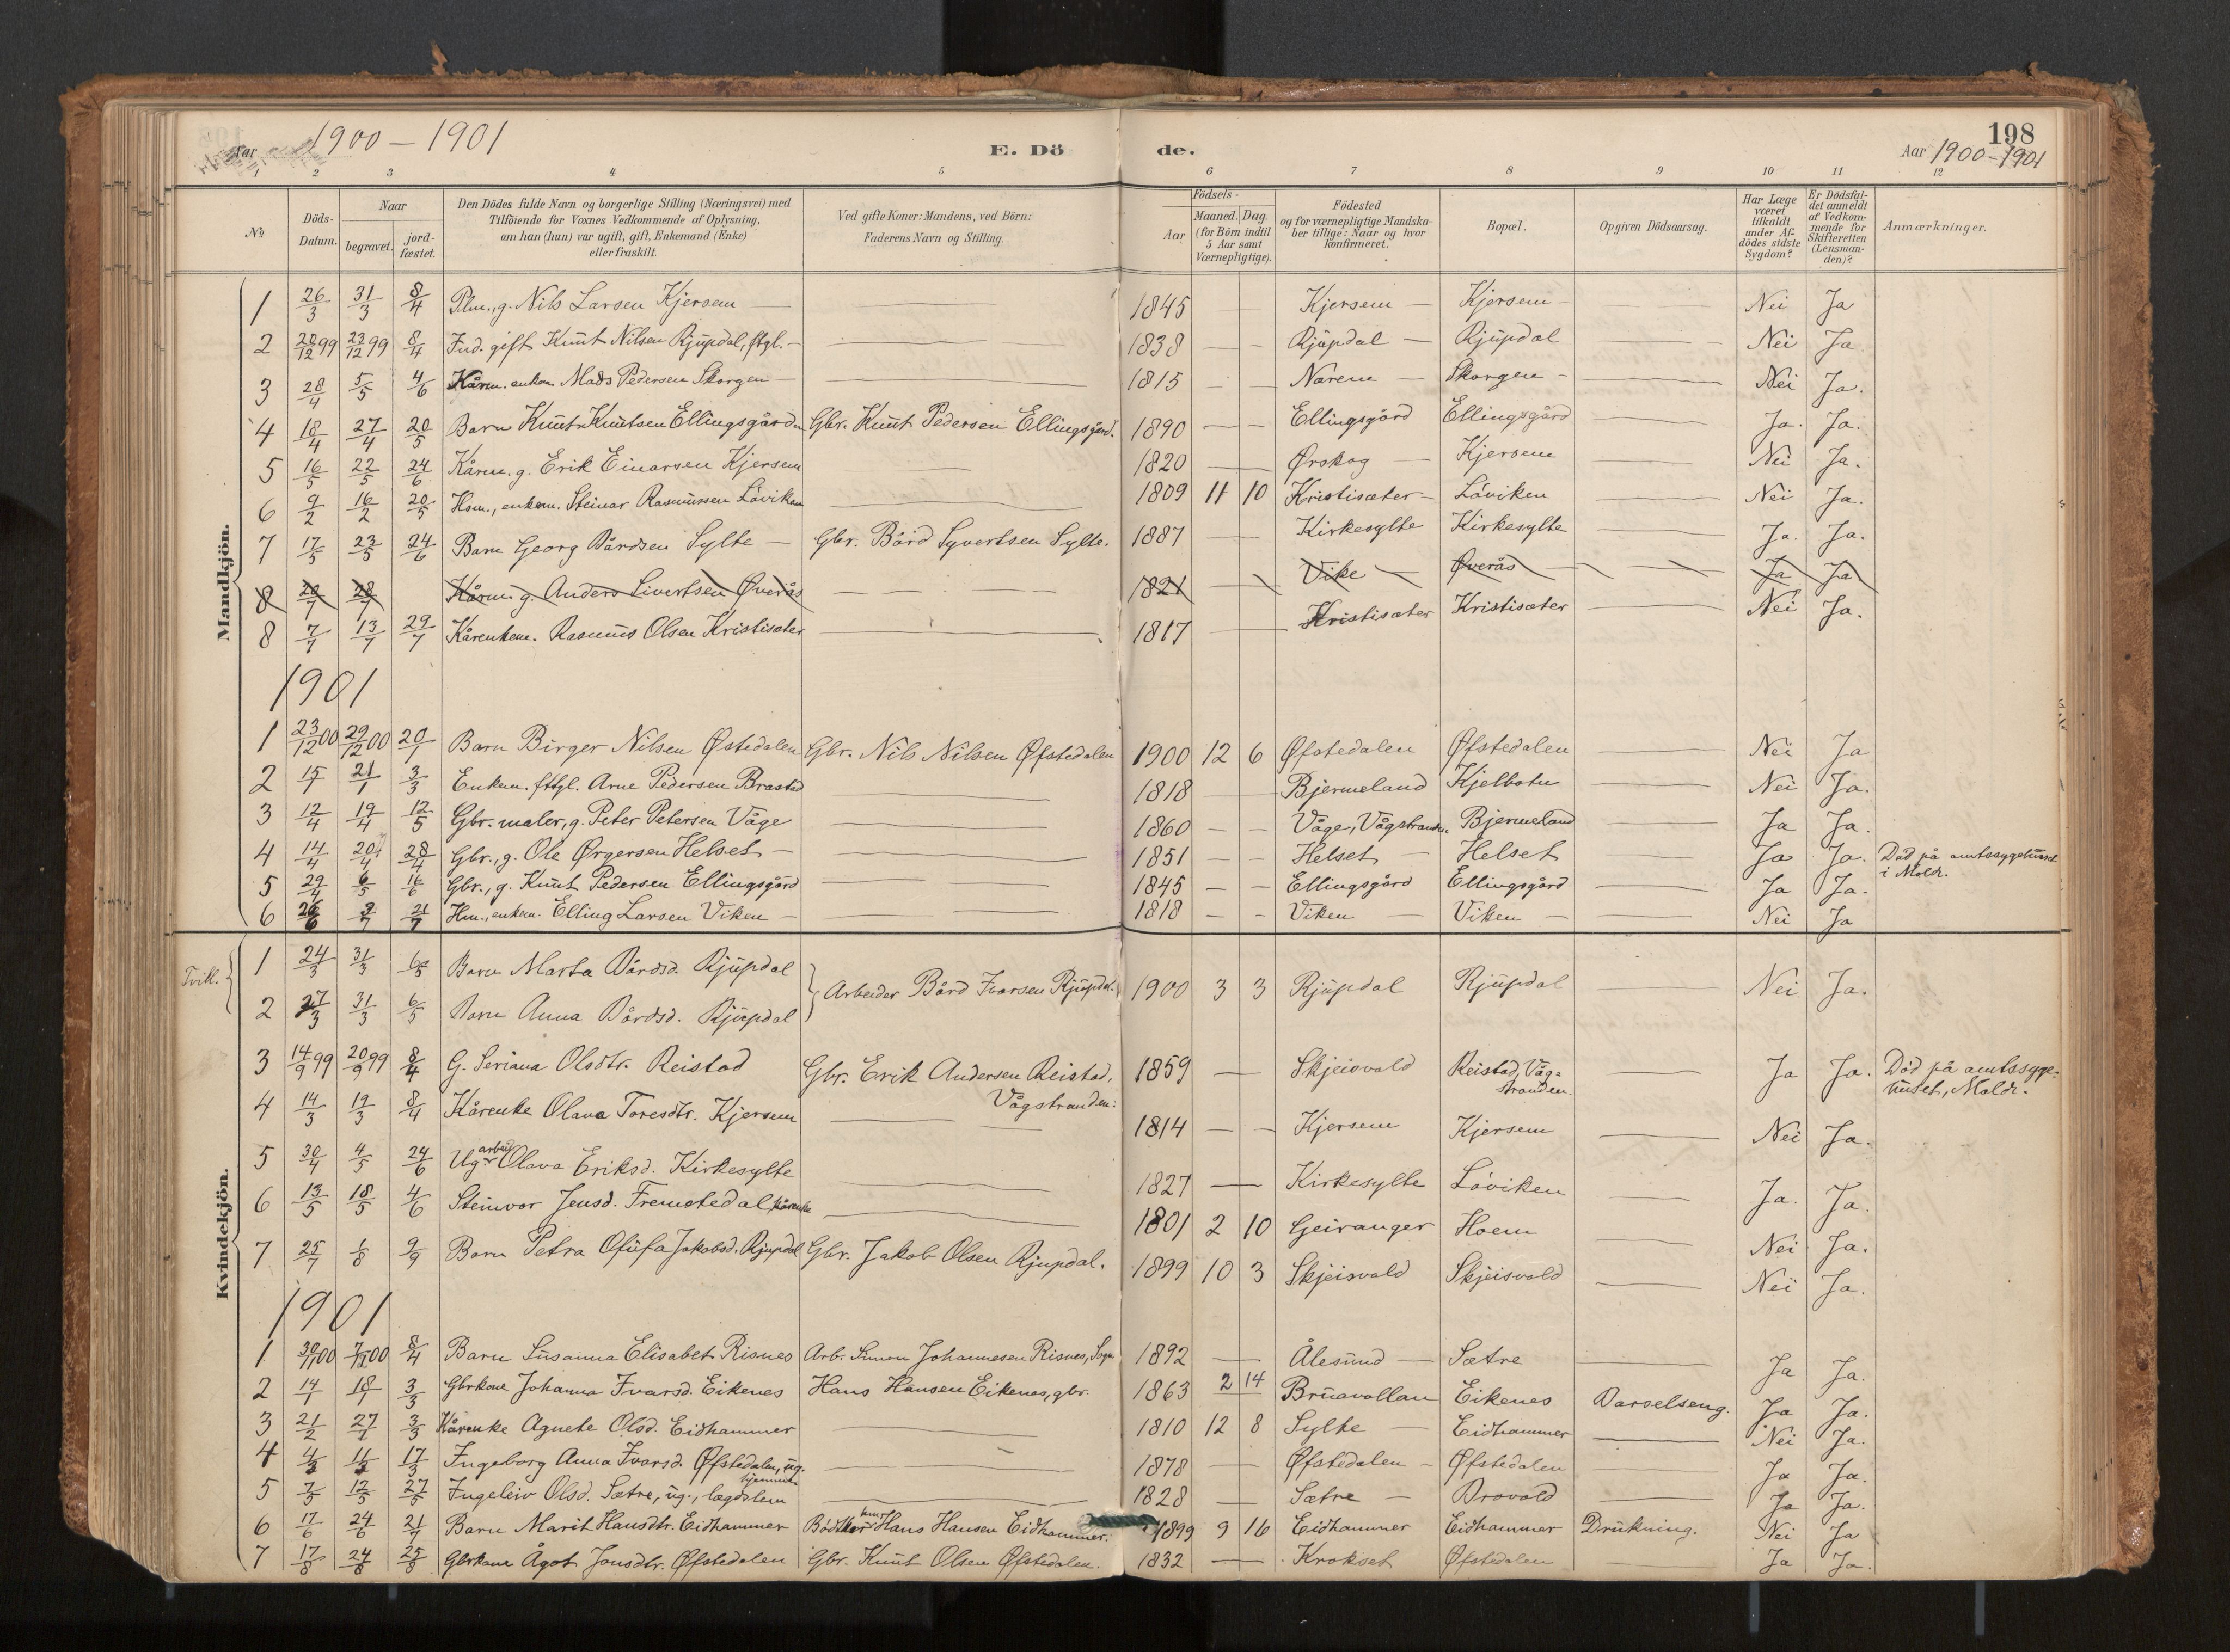 198
Aar 1900 – 1901
E. Dö de.
Aar 1900–1901
1 2 3 4 5 6 7 8 9 10 11 12
№
Döds-Datum.
Naar
begravet.
jord-fæstet.
Den Dödes fulde Navn og borgerlige Stilling (Næringsvei) med
Tilföiende for Voxnes Vedkommende af Oplysning,
om han (hun) var ugift, gift, Enkemand (Enke)
eller fraskilt.
Ved gifte Koner: Mandens, ved Börn:
Faderens Navn og Stilling
Födsels-
Aar
Maaned. Dag.
(for Börn indtil
5 Aar samt
Værnepligtige).
Födested
og for værnepligtige Mandska-
ber tillige: Naar og hvor
konfirmeret.
Bopæl.
Opgiven Dödsaarsag.
Har Læge
været
tilkaldt
under Af-
dödes sidste
Sygdom?
Er Dödsfal-
det anmeldt
af Vedkom-
mende for
Skifteretten
(Lensman-
den)?
Anmærkninger.
Mandkjön.
1 26/3 31/3 8/4 Plm., g. Nils Larsen Kjersem — 1845 — — Kjersem — Kjersem — Nei Ja
2 20/12 99 23/12 99 8/4 Ind. gift Knut Nilsen Rjupdal, ftgl. — 1838 — — Rjupdal — Rjupdal — Nei Ja
3 28/4 5/5 4/6 Kårm. enkem. Mads Pedersen Skorgen — 1815 — — Narem — Skorgen — Nei Ja.
4 18/4 27/4 20/5 Barn Knut Knutsen Ellingsgård Gbr. Knut Pedersen Ellingsgård. 1890 — — Ellingsgård Ellingsgård — Ja. Ja.
5 16/5 22/5 24/6 Kårm. g. Erik Einarsen Kjersem — 1820 — Ørskog — Kjersem — Nei Ja.
6 9/2 16/2 20/5 Hsm., enkem. Steinar Rasmussen Löviken — 1809 11 10 Kristisæter — Löviken — Nei Ja.
7 17/5 23/5 24/6 Barn Georg Bårdsen Sylte — Gbr. Bård Syvertsen Sylte. 1887 — Kirkesylte Kirkesylte — Ja. Ja.
8 20/7 28/7 Kårm. g. Anders Sivertsen Øverås — 1821 — Vike — Øverås — Ja Ja
8 7/7 13/7 29/7 Kårenkem. Rasmus Olsen Kristisæter — 1817 — Kristisæter Kristisæter — Nei Ja.
1901
1 23/12 00 29/12 00 20/1 Barn Birger Nilsen Øfstedalen Gbr. Nils Nilsen Øfstedalen 1900 12 6 Øfstedalen Øfstedalen — Nei Ja
2 15/1 21/1 3/3 Enkem. fttgl. Arne Pedersen Brastad — 1818 — Bjermeland Kjelbotn — Nei Ja.
3 12/4 19/4 12/5 Gbr. maler, g. Peter Petersen Våge — 1860 — — Våge, Vågstranden Bjermeland — Ja Ja.
4 14/4 20/4 28/4 Gbr., g. Ole Ørgersen Helset — 1851 — — Helset — Helset — Ja Ja. Död på amtssygehuset
i Molde.
5 29/4 6/5 16/6 Gbr., g. Knut Pedersen Ellingsgård — 1845 — — Ellingsgård Ellingsgård — Ja Ja.
6 26/6 2/7 21/7 Hm., enkem. Elling Larsen Viken — 1818 — — Viken — Viken — Nei Ja
Kvindekjön.
Tvill.
1 24/3 31/3 6/5 Barn Marta Bårdsd. Rjupdal
Arbeider Bård Ivarsen Rjupdal. 1900 3 3 Rjupdal Rjupdal — Nei Ja.
2 27/3 31/3 6/5 Barn Anna Bårdsd. Rjupdal
3 14/9 99 20/9 99 8/4 G. Seriana Olsdtr. Reistad Gbr. Erik Andersen Reistad,
Vågstranden. 1859 — Skjeisvold Reistad, Våg-
stranden. — Ja Ja. Död på amtssyge-
huset, Molde.
4 14/3 19/3 8/4 Kårenke Olava Toresdtr. Kjersem — 1814 — — Kjersem Kjersem — Nei Ja.
5 30/4 4/5 24/6 Ug. arbeid. Olava Eriksd. Kirkesylte — 1827 — Kirkesylte Löviken — Ja. Ja.
6 13/5 18/5 4/6 Steinvor Jensd. Fremstedal, kårenke — 1801 2 10 Geiranger Hoem — Nei Ja.
7 25/7 1/8 9/9 Barn Petra Olufa Jakobsd. Rjupdal Gbr. Jakob Olsen Rjupdal. 1899 10 3 Skjeisvold Skjeisvold — Nei Ja.
1901
1 30/11 00 7/12 00 8/4 Barn Susanna Elisabet Risnes Arb. Simon Johannesen Risnes, Sogn 1892 — Ålesund — Sætre — Ja Ja.
2 14/1 18/1 3/3 Gbrkone Johanna Ivarsd. Eikenes Hans Hansen Eikenes, gbr. 1863 2 14 Bruavollan Eikenes Barselseng. Ja Ja.
3 21/2 27/2 3/3 Kårenke Agnete Olsd. Eidhammer — 1810 12 8 Sylte — Eidhammer — Nei Ja.
4 4/3 11/3 17/3 Ingeborg Anna Ivarsd. Øfstedalen, ug.
hjemmev. — 1878 — Øfstedalen — Øfstedalen — Ja Ja.
5 7/5 12/5 27/5 Ingeleiv Olsd. Sætre, ug., lægdslem — 1828 — Sætre — Brovold — Ja Ja.
6 17/6 24/6 21/7 Barn Marit Hansdtr. Eidhammer Bödker hm. Hans Hansen Eidhammer. 1899 9 16 Eidhammer Eidhammer Drukning. Nei Ja
7 17/8 24/8 25/8 Gbrkone Ågot Jonsdtr. Øfstedalen Gbr. Knut Olsen Øfstedalen. 1832 — Krokset Øfstedalen — Ja Ja.